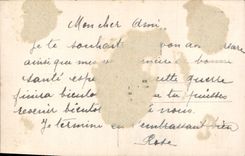 Mon cher Ami.
Je te souhaite bon anniversaire
ainsi que mes bonne
santé cette guerre
finira bientôt tu puisses
revenir bientôt nous.
Je termine en t'embrassant bien
Rose